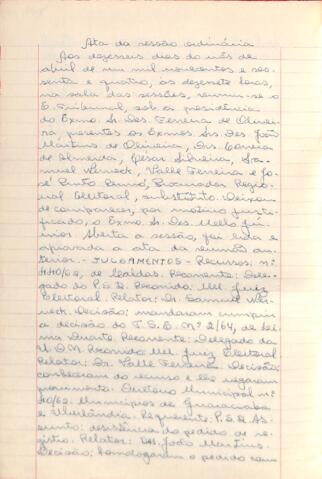 Ata da sessão ordinária
Aos dezesseis dias do mês de
abril de um mil novecentos e ses-
senta e quatro, às dezesete horas,
na sala das sessões, reuniu-se o
E. Tribunal, sob a presidência
do Exmo. Sr. Des. Ferreira de Oliveira,
presentes os Exmos. Srs. Des. João
Martins de Oliveira, Drs. Correia
de Almeida, Cesar Silveira, Sa-
muel Werneck, Valle Ferreira e Jo-
sé Pinto, Procurador Regio-
nal Eleitoral, substituto. Deixou
de comparecer, por motivo justi-
ficado, o Exmo. Sr. Des. Mello Jú-
nior. Aberta a sessão, foi lida e
aprovada a ata da reunião an-
terior. - JULGAMENTOS - Recursos: nº
440/62, de Caldas. Recorrente: Dele-
gado do P.S.D. Recorrido: MM. Juiz
Eleitoral. Relator: Dr. Samuel Wer-
neck. Decisão: mandaram cumprir
a decisão do T.S.E. Nº 2/64, de
Duarte. Recorrente: Delegado da
U.D.N. Recorrido: MM. Juiz Eleitoral
Relator: Dr. Valle Ferreira. Decisão:
conheceram do recurso e lhe negaram
provimento. Diretório Municipal nº
40/62. Municípios de Guaraciaba
e Uberlândia. Requerente: P.S.D. As-
sunto: desistência do pedido de re-
gistro. Relator: Des. João Martins.
Decisão: homologaram o pedido com